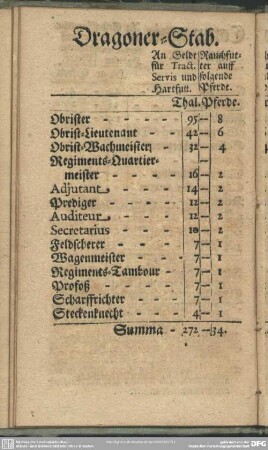 Dragoner-Stab.
An Geldt Rauchfut-
für Tract. ter auff
Servis und folgende
Hartfutt. Pferde.
Thal. Pferde.
Obrister - - - - 95 - 8
Obrist-Lieutenant - - 42 - 6
Obrist-Wachmeister - - 32 - 4
Regiments-Quartier-
meister - - - 16 - 2
Adjutant - - - 14 - 2
Prediger - - - 12 - 2
Auditeur - - - 12 - 2
Secretarius - - - 10 - 2
Feldscherer - - - 7 - 1
Wagenmeister - - 7 - 1
Regiments-Tambour - 7 - 1
Profoß - - - 7 - 1
Scharffrichter - - 7 - 1
Steckenknecht - - 4 - 1
Summa - 272 - 34.
DFG